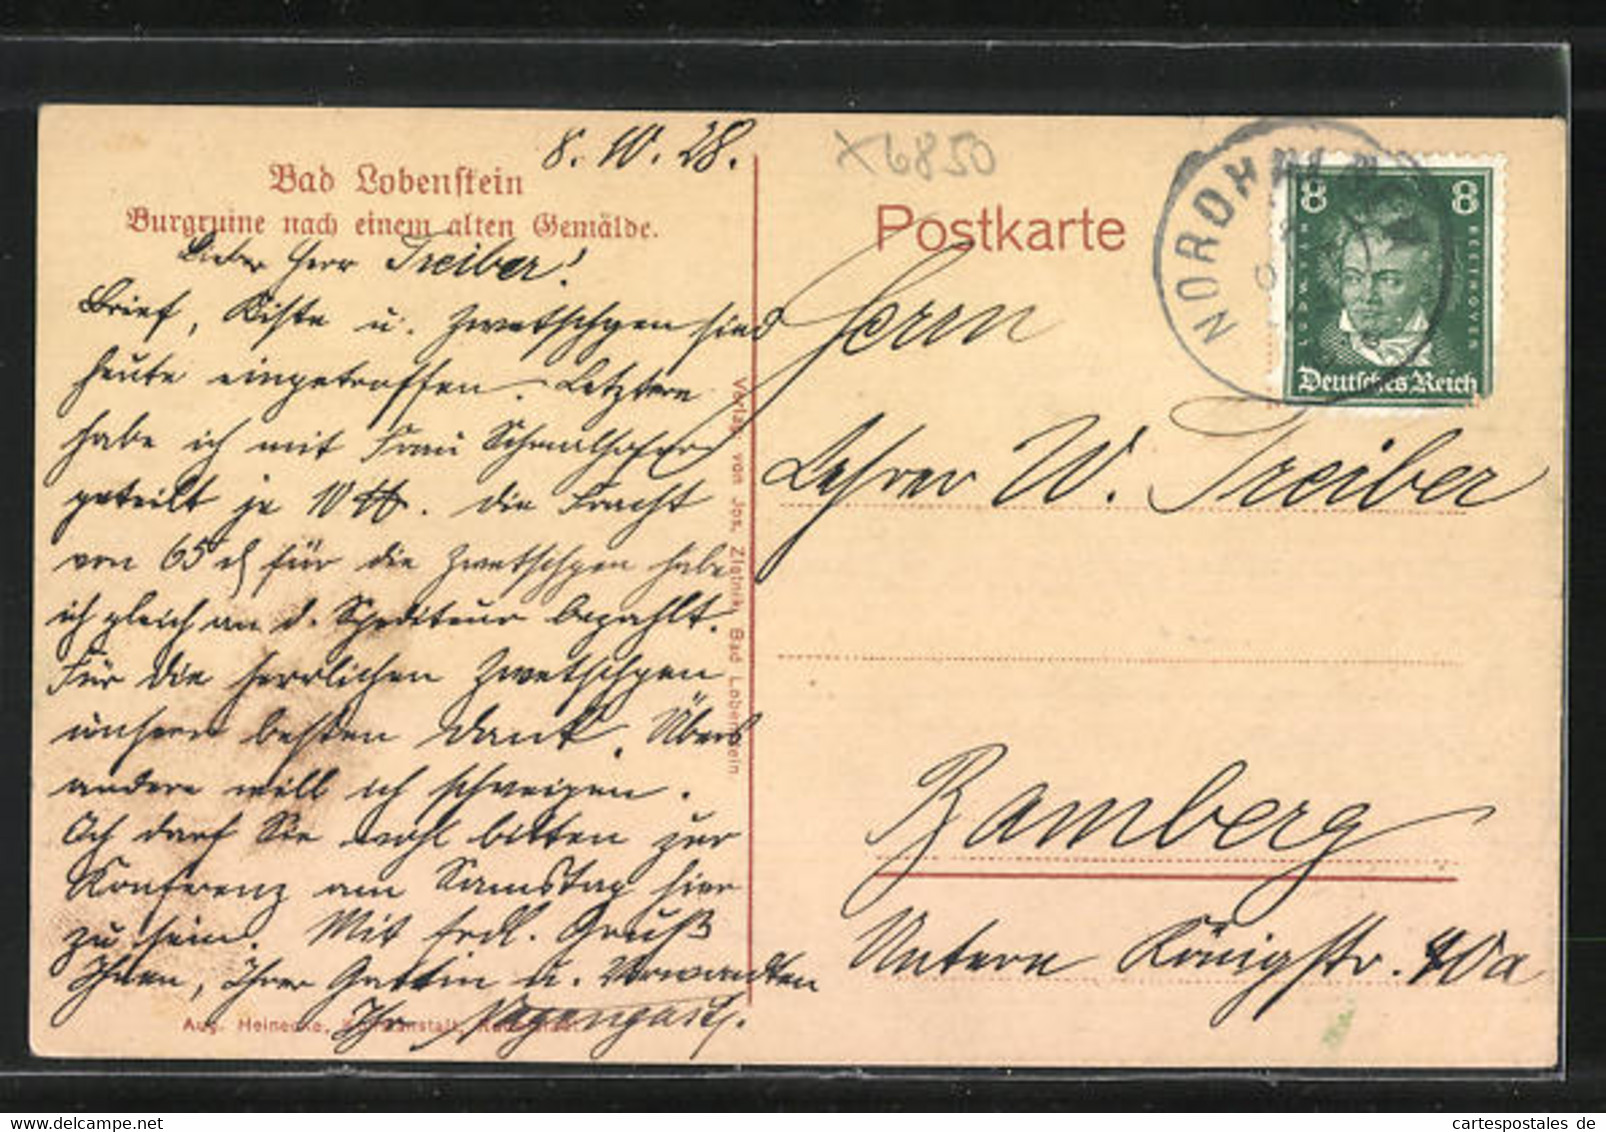 8. 10. 28.
Bad Lobenstein
Burgruine nach einem alten Gemälde.
Lieber Herr Treiber!
Brief, Kiste u. Zwetschgen sind
heute eingetroffen. Letztere
habe ich mit Frau Schmalhofer
geteilt je 10 ℔. Die Fracht
von 65 ₰ für die Zwetschgen habe
ich gleich an d. Spediteur bezahlt.
Für die herrlichen Zwetschgen
unsern besten Dank. Übers
andere will ich schweigen.
Ich darf Sie wohl bitten zur
Konferenz am Samstag hier
zu sein. Mit frdl. Gruß
Ihnen, Ihrer Gattin u. Verwandten
Ihr
Aug. Heinecke,
Verlag von Jos. Zlotnik, Bad Lobenstein
X6850
Postkarte
NORDHALBEN
8 8
LUDW. VAN BEETHOVEN
Deutsches Reich
Herrn
Lehrer W. Treiber
Bamberg
Untere Königstr. 40a
cartespostales de
www.cartespostales.de